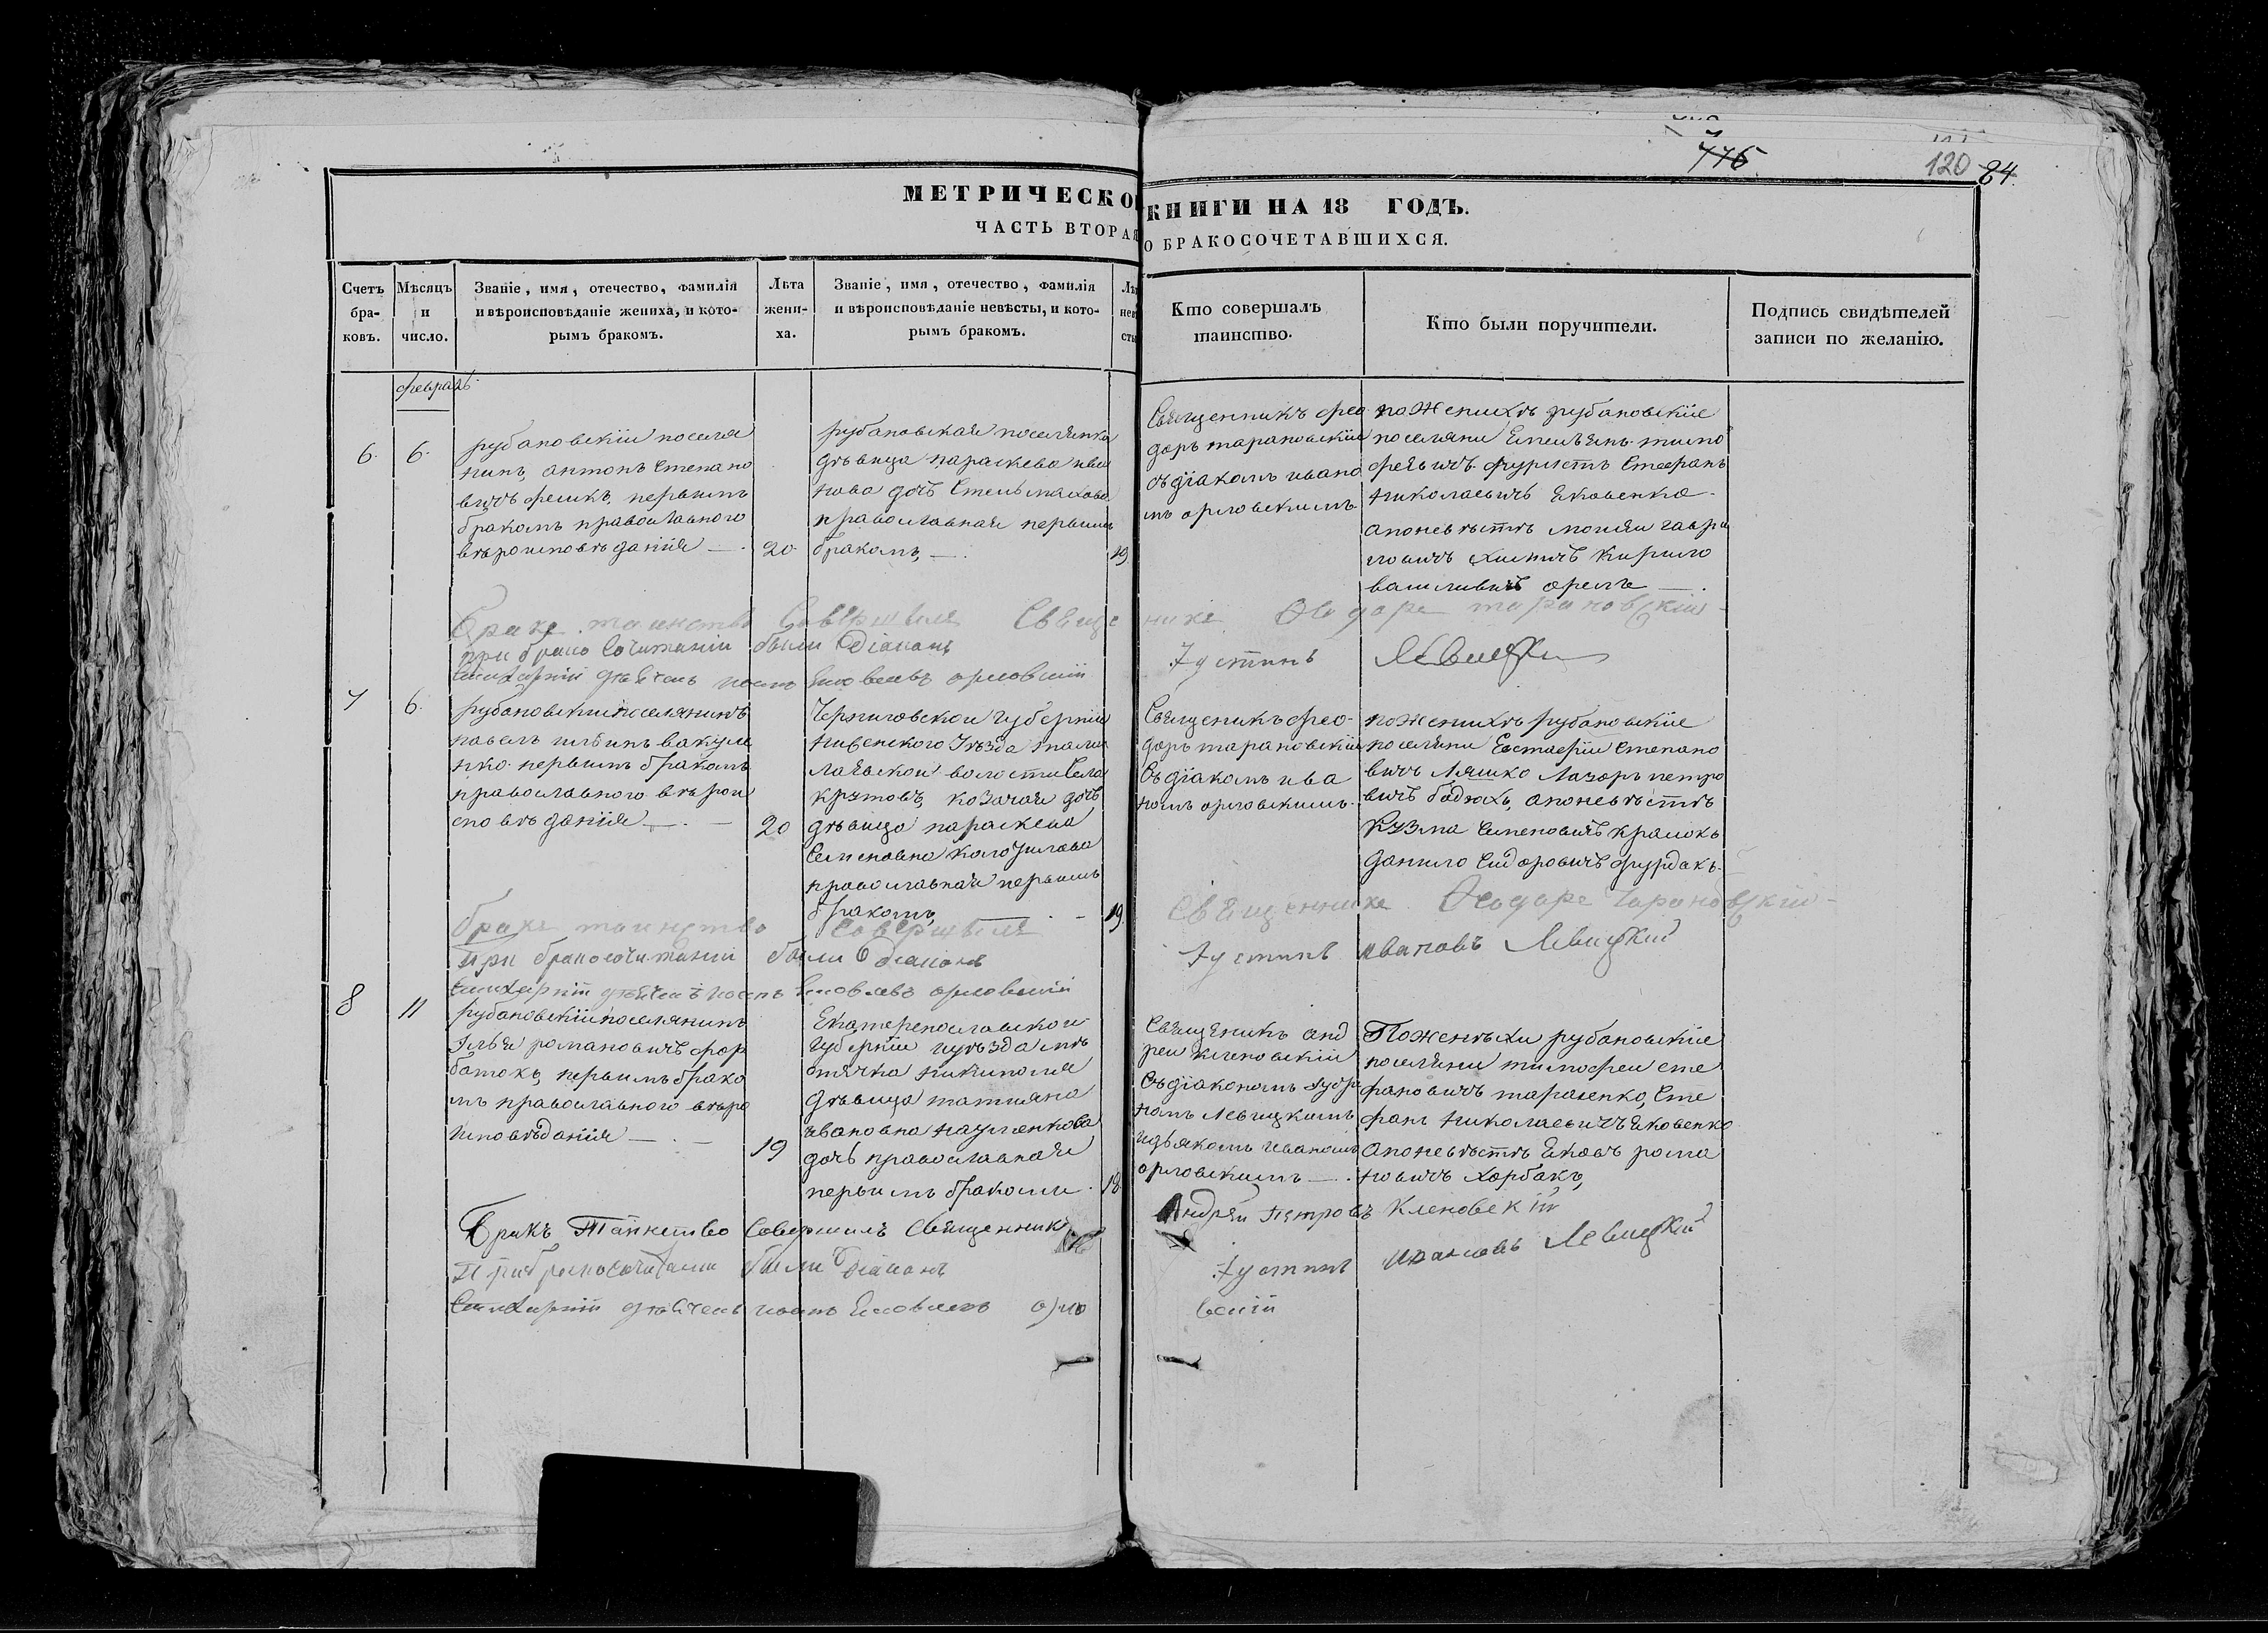 776
120 84.
МЕТРИЧЕСКО КНИГИ НА 18 ГОДЪ.
ЧАСТЬ ВТОРАЯ О БРАКОСОЧЕТАВШИХСЯ.
Счетъ бра- ковъ.
Мѣсяцъ и число.
Званіе, имя, отечество, фамилія
и вѣроисповѣданіе жениха, и кото-
рымъ бракомъ.
Лѣта жени- ха.
Званіе, имя, отечество, фамилія
и вѣроисповѣданіе невѣсты, и кото-
рымъ бракомъ.
Кто совершалъ
таинство.
Кто были поручители.
Подпись свидѣтелей
записи по желанію.
февраль
6. 6.
рубановскіи поселя
нинъ, антонъ Степано
вичъ фесикъ, первымъ
бракомъ православного
вѣроисповѣданія
20.
рубановская поселянка
дѣвица параскева ива
нова дочь Стельмахова
православная первымъ
бракомъ,
19
Священникъ фео
доръ тарановскіи
съ діакомъ ивано
мъ орловскимъ
по женихѣ рубановскіе
поселяни Емельянъ тимо
феевичъ Стефанъ
николаевичъ Яковенко
апоневѣстѣ моисеи гаври
ловичъ Кирило
василивичъ орелъ
Бракъ таинство Совершилъ Священникъ Феодоръ тарановскій
при брако Сочитаніи были Діаконъ Іустинъ Левицкій
Стихарній дьячекъ иоанъ Яковлевъ орловскій
7 6.
рубановскіи поселянинъ
павелъ ильинъ вакуле
нко первымъ бракомъ
православного вѣрои
сповѣданія
20
Черниговскои губерніи
Уѣзда
волости Села
крутовъ, козачая дочь
дѣвица параскева
Семеновна
православная первымъ
бракомъ,
19.
Священикъ фео-
доръ тарановскіи
Съ діакомъ ива
номъ орловскимъ.
по женихѣ рубановскіе
поселяни Евстафіи Степано
вичъ Ляшко Лазоръ петро
вичъ бадюхъ, апоневѣстѣ
Кузма Семеновичъ
данило Сидоровичъ
бракъ таинство Совершилъ Священникъ Феодоръ Тарановскій
При бракосочитаніи были Діаконъ Іустинъ ивановъ Левицкій
Стихарній дьячекъ иоанъ Яковлевъ орловскій
8 11
рубановскіи поселянинъ
Илья романовичъ
первымъ брако
мъ православного вѣро
исповѣданія
19
Екатеренославскои
губерніи
дѣвица татияна
ивановна науменкова
дочь православная
первымъ бракомъ.
18
Священикъ анд
реи кленовскіи
Съ діакономъ
Левицкимъ
и дьякомъ иваномъ
орловскимъ
По женѣхи рубановскіе
поселяни тимофеи сте
фановичъ тарасенко, Сте
фанъ николаевичъ Яковенко
апоневѣстѣ Яковъ рома
новичъ Харбакъ,
Бракъ Таинство Совершилъ Священникъ Андрей Петровъ Кленовскій
При бракосочитаніи были Діаконъ Іустинъ ивановъ Левицкій
Стихарній дьячекъ иоанъ Яковлевъ орло вскій